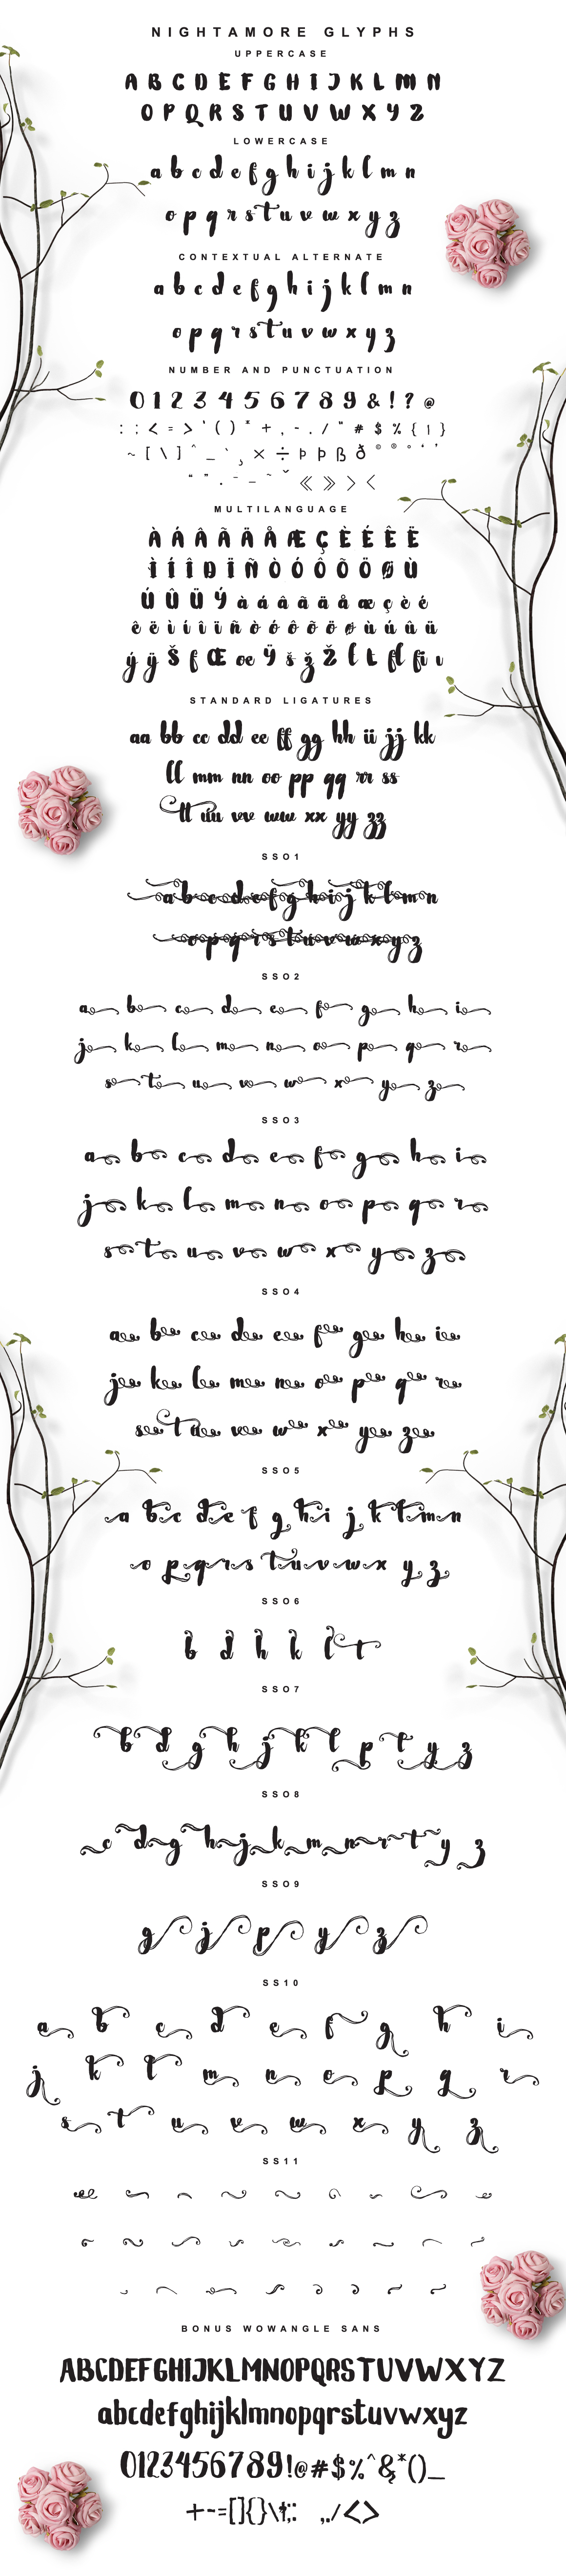 NIGHTAMORE GLYPHS
UPPERCASE
A B C D E F G H I J K L M N
O P Q R S T U V W X Y Z
LOWERCASE
a b c d e f g h i j k l m n
o p q r s t u v w x y z
CONTEXTUAL ALTERNATE
a b c d e f g h i j k l m n
o p q r s t u v w x y z
NUMBER AND PUNCTUATION
0 1 2 3 4 5 6 7 8 9 & ! ? @
: ; < = > ' ( ) * + , - . / " # $ % { | }
~ [ \ ] ^ _ ` ¸ × ÷ Þ Þ ß ð © ® ° ‘ ’
“ ” . ¯ – ~ ˇ « » › ‹
MULTILANGUAGE
À Á Â Ã Ä Å Æ Ç È É Ê Ë
Ì Í Î Ð Ï Ñ Ò Ó Ô Õ Ö Ø Ù
Ú Û Ü Ý à á â ã ä å æ ç è é
ê ë ì í î ï ñ ò ó ô õ ö ø ù ú û ü
ý ÿ Š f Œ oe Ÿ š ž Ž ł Ł fl fi ı
STANDARD LIGATURES
aa bb cc dd ee ff gg hh ii jj kk
ll mm nn oo pp qq rr ss
tt uu vv ww xx yy zz
SS01
a b c d e f g h i j k l m n
o p q r s t u v w x y z
SS02
a b c d e f g h i
j k l m n o p q r
s t u v w x y z
SS03
a b c d e f g h i
j k l m n o p q r
s t u v w x y z
SS04
a b c d e f g h i
j k l m n o p q r
s t u v w x y z
SS05
a b c d e f g h i j k l m n
o p q r s t u v w x y z
SS06
b d h k l t
SS07
b d g h j k l p t y z
SS08
c d g h j k m n r t y z
SS09
g j p y z
SS10
a b c d e f g h i
j k l m n o p q r
s t u v w x y z
SS11
BONUS WOWANGLE SANS
ABCDEFGHIJKLMNOPQRSTUVWXYZ
abcdefghijklmnopqrstuvwxyz
0123456789!@#$%^&*()_
+-=[]{}\|;: ,./<>